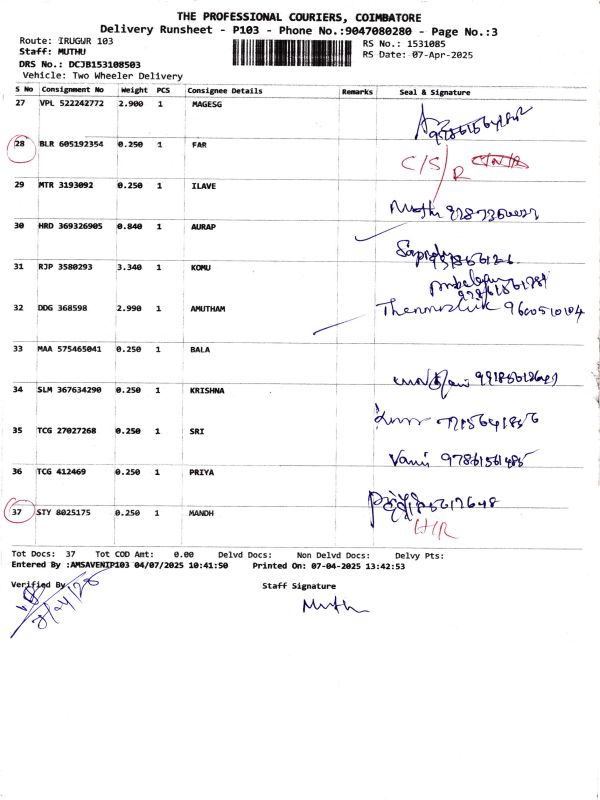 THE PROFESSIONAL COURIERS, COIMBATORE
Delivery Runsheet - P103 - Phone No.:9047080280 - Page No.:3
Route: IRUGUR 103 RS No.: 1531085
Staff: MUTHU RS Date: 07-Apr-2025
DRS No.: DCJB153108503
Vehicle: Two Wheeler Delivery
S No Consignment No Weight PCS Consignee Details Remarks Seal & Signature
27 VPL 522242772 2.900 1 MAGESG
28 BLR 605192354 0.250 1 FAR
C/S/R
29 MTR 3193092 0.250 1 ILAVE
30 HRD 369326905 0.840 1 AURAP
31 RJP 3580293 3.340 1 KOMU
32 DDG 368598 2.990 1 AMUTHAM
9600510104
33 MAA 575465041 0.250 1 BALA
34 SLM 367634290 0.250 1 KRISHNA
35 TCG 27027268 0.250 1 SRI
36 TCG 412469 0.250 1 PRIYA
Vani
37 STY 8025175 0.250 1 MANDH
H/R
Tot Docs: 37 Tot COD Amt: 0.00 Delvd Docs: Non Delvd Docs: Delvy Pts:
Entered By :AMSAVENIP103 04/07/2025 10:41:50 Printed On: 07-04-2025 13:42:53
Verified By Staff Signature
Muthu